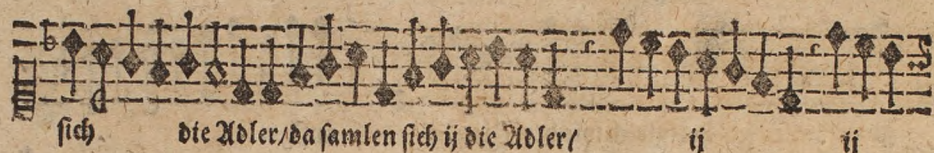 sich die Adler/da samlen sich ij die Adler/ ij ij